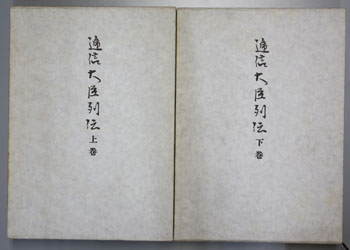 逓信大臣列伝
上巻
逓信大臣列伝
下巻